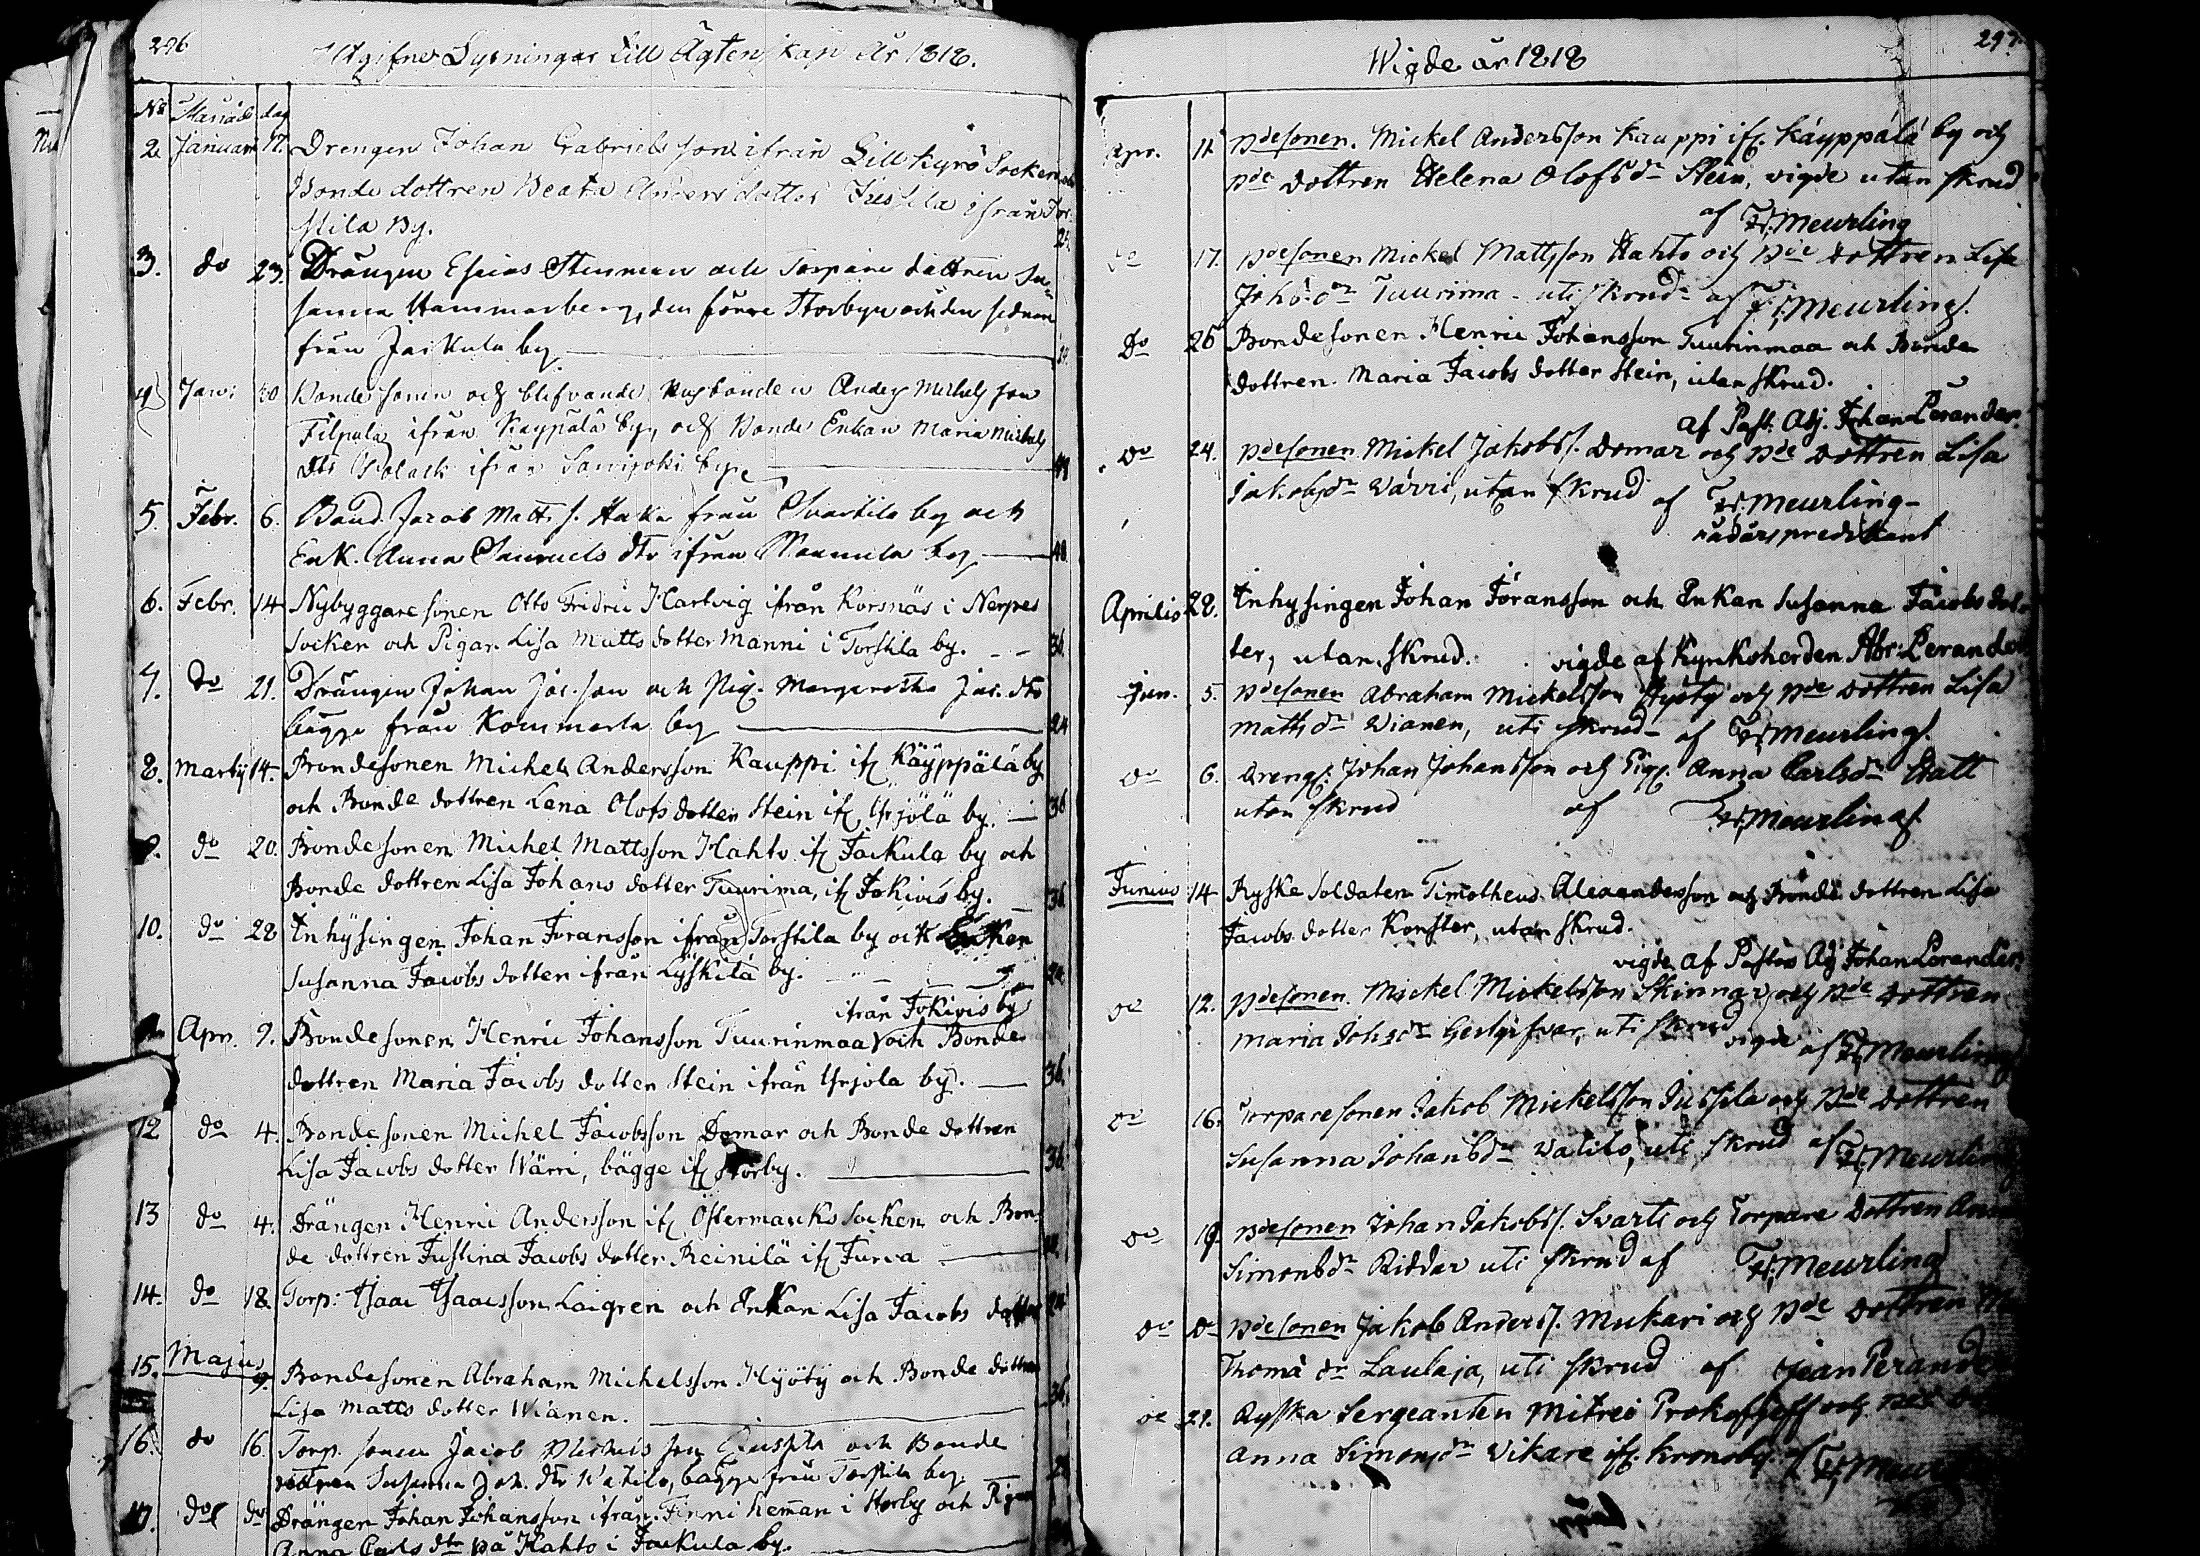 296
Utgifne Lysningar till Ägtenskap År 1818.
No Månad dag
2 Januari 17. Drengen Johan Gabriels son ifrån Lillkyrö Socken och
Bonde dottren Beata Anders dotter Jussila ifrån Tor-
stila By. 24.
3. do 23. Drängen Esaias Stenman och Torpare dottren Su-
sanna Hammarberg, den förre Storbyn och den sednare
från Jackula by
4 Jan: 30 Bonde sonen och blifvande husbonden Anders Michels son
Filpula ifrån Käypälä by, och Bonde Enkan Maria Michels
dtr Polack ifrån by
5. Febr. 6. Bond. Jacob Matts s. Haka från Svartila by och
Enk. Anna Samuels dtr ifrån by 48
6. Febr. 14 Nybyggare sonen Otto Fridric Hartvig ifrån Korsnäs i Nerpes
Socken och Pigan Lisa Matts dotter Manni i Torstila by. 36.
7. Do 21. Drängen Johan Jac. son och Pig. Margaretha Jac. dtr
bägge från Kommarla by 24
8. Martij 14. Bondesonen Michel Andersson Kauppi if. Käyppälä by
och Bonde dottren Lena Olofs dotter Stein if. Yrjölä by. 36
9. do 20. Bondesonen Michel Mattsson Hahto if. Jackula by och
Bonde dottren Lisa Johans dotter Tuurima, if. Jokivis by. 36
10. do 28 Inhysingen Johan Joransson ifrån Torstila by och Enken
Susanna Jacobs dotter ifrån Lyskilä by. 24.
ifrån Jokivis by
Apr. 9. Bondesonen Henric Johansson Tuurinmaa och Bonde
dottren Maria Jacobs dotter Stein ifrån Yrjola by. 36.
12 do 4. Bondesonen Michel Jacobsson Domar och Bonde dottren
Lisa Jacobs dotter Wärri, bägge if. Storby. 36.
13 do 4. Drängen Henric Andersson if. Östermarks Socken och Bon-
de dottren Justina Jacobs dotter Reinilä if. Jurva
14. do 18 Torp: Isaac Isaacsson Laigren och Enkan Lisa Jacobs dotter 24
15. Majus 9. Bondesonen Abraham Michelsson Hyöty och Bonde dottren
Lisa Matts dotter Wianen. 36.
16. do 16. Torp. sonen Jacob Michels son Jussila och Bonde
dottren Susanna Joh. dtr Watilo, bägge från Torstila by.
17. do do Drängen Johan Johansson ifrån Finni hemman i Storby och Pigan
Anna Carls dtr på Hahto i Jackula by.
297.
Wigde år 1818
Apr. 11 Bdesonen. Mickel Andersson Kauppi if. Käyppälä by och
Bde dottren Helena Olofsdr Stein, vigde utan skrud
af Fr. Meurling
do 17. Bdesonen Mickel Mattsson Hahto och Bde dottren Lisa
Johs. dr Tuurima - uti skrud - af Fr. Meurling.
Do 26 Bondesonen Henric Johansson Tuurinmaa och Bonde
dottren. Maria Jacobs dotter Stein, utan skrud.
af Past. Adj. Johan Perander.
Do 24. Bdesonen Mickel Jakobss. Domar och Bde Dottren Lisa
Jakobsdr Värri, utan skrud af Fr. Meurling -
nådårspredikant
Aprilis 28. Inhysingen Johan Joransson och Enkan Susanna Jacobs dot-
ter, utan skrud. vigde af Kyrkoherden Abr: Perander
Jun. 5. Bdesonen Abraham Mickelsson Hyöty och Bde dottren Lisa
Mattsdr Wianen, uti skrud - af Fr. Meurling.
do 6. Drengs. Johan Johansson och Pig. Anna Carlsdr Hatt
utan skrud af Fr. Meurling.
Junius 14 Ryske Soldaten Timotheus Alexandersson och Bonde dottren Lisa
Jacobs dotter Konster, utan skrud.
vigde af Pastors Adj Johan Perander.
do 12. Bdesonen. Mickel Mickelsson Skinnar och Bde dottren
Maria Johsdr uti skrud vigde af Fr. Meurling
do 16. Torparesonen Jakob Mickelsson Jussila och Bde dottren
Susanna Johansdr Vatilo, uti skrud af Fr. Meurling
do 19 Bdesonen Johan Jakobss. Svarti och Torpare Dottren
Simonsdr Riddar uti skrud af Fr. Meurling
do do Bdesonen Jakob Anderss. Mukari och Bde dottren
Thomä dr Laulaja, uti skrud af Jean Perander
do 21. Ryska Sergeanten Mitrei Prokoffjeff och
Anna Simonsdr Vikare if. Kronoby. af Fr. Meurling